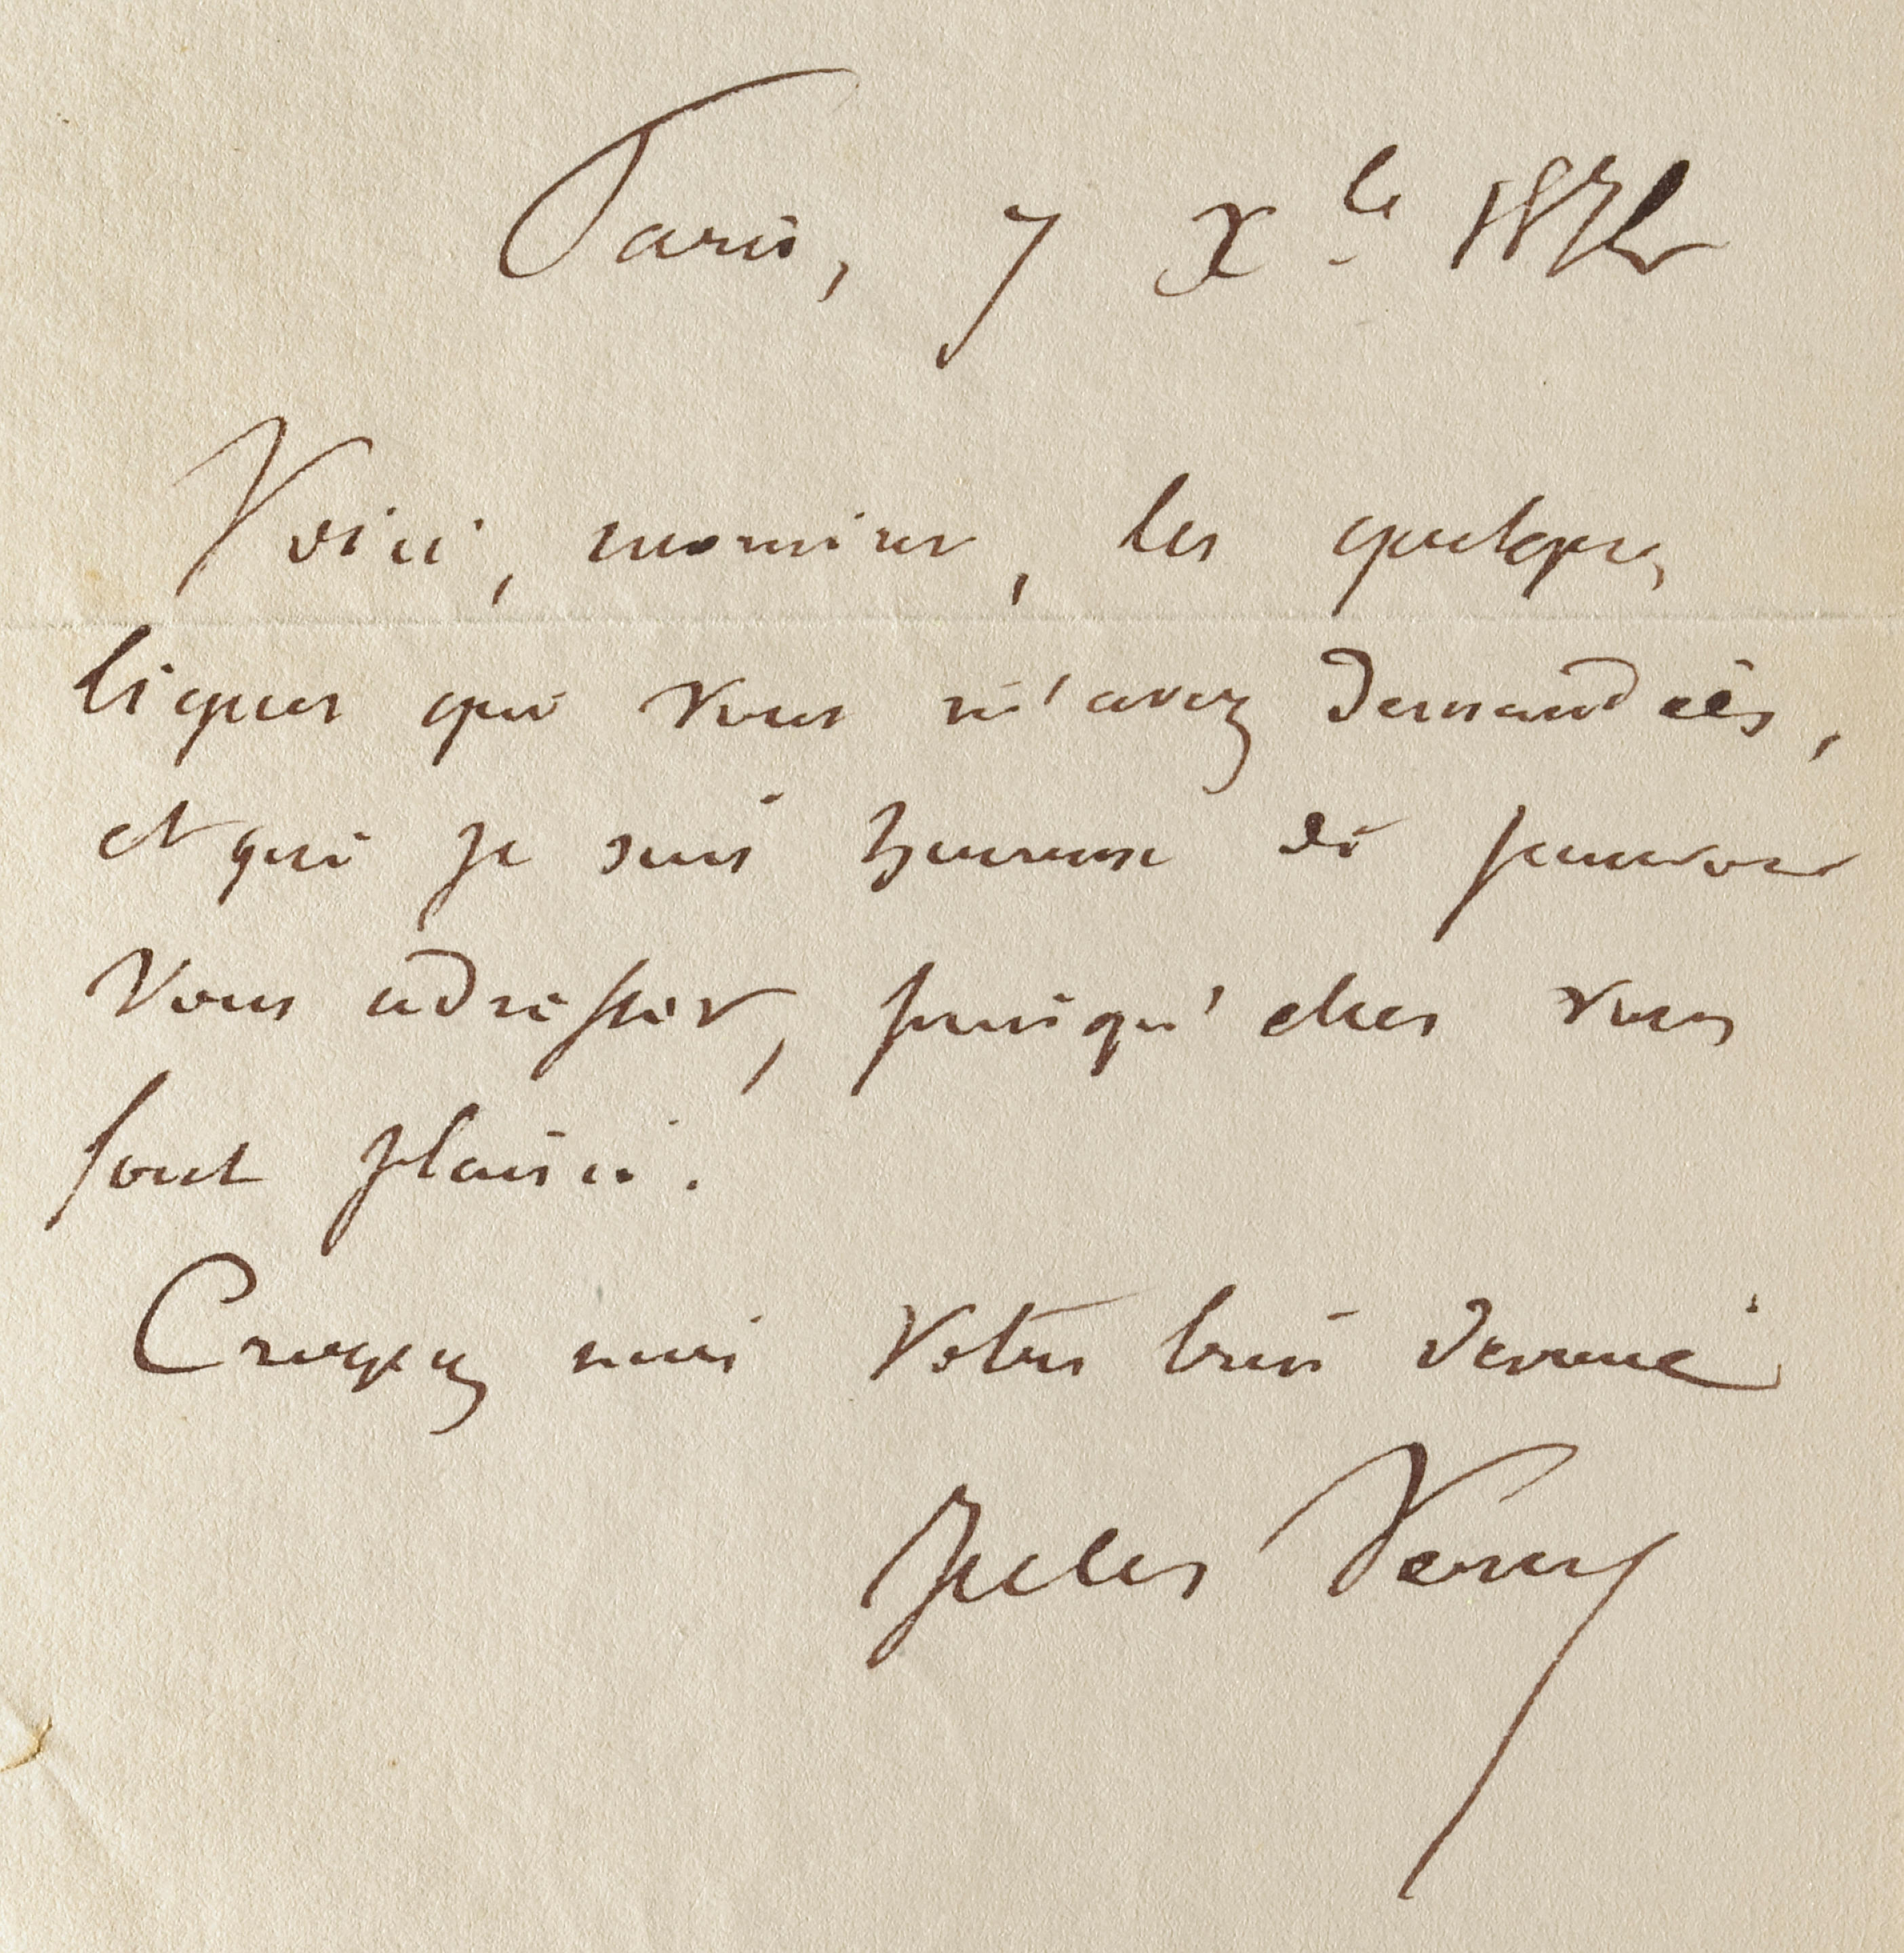 Paris, 7 Xbre 1872
Voici, monsieur, les quelques
lignes que vous m'avez demandées,
et que je suis heureux de pouvoir
vous adresser, puisqu'elles vous
font plaisir.
Croyez moi votre bien dévoué
Jules Verne